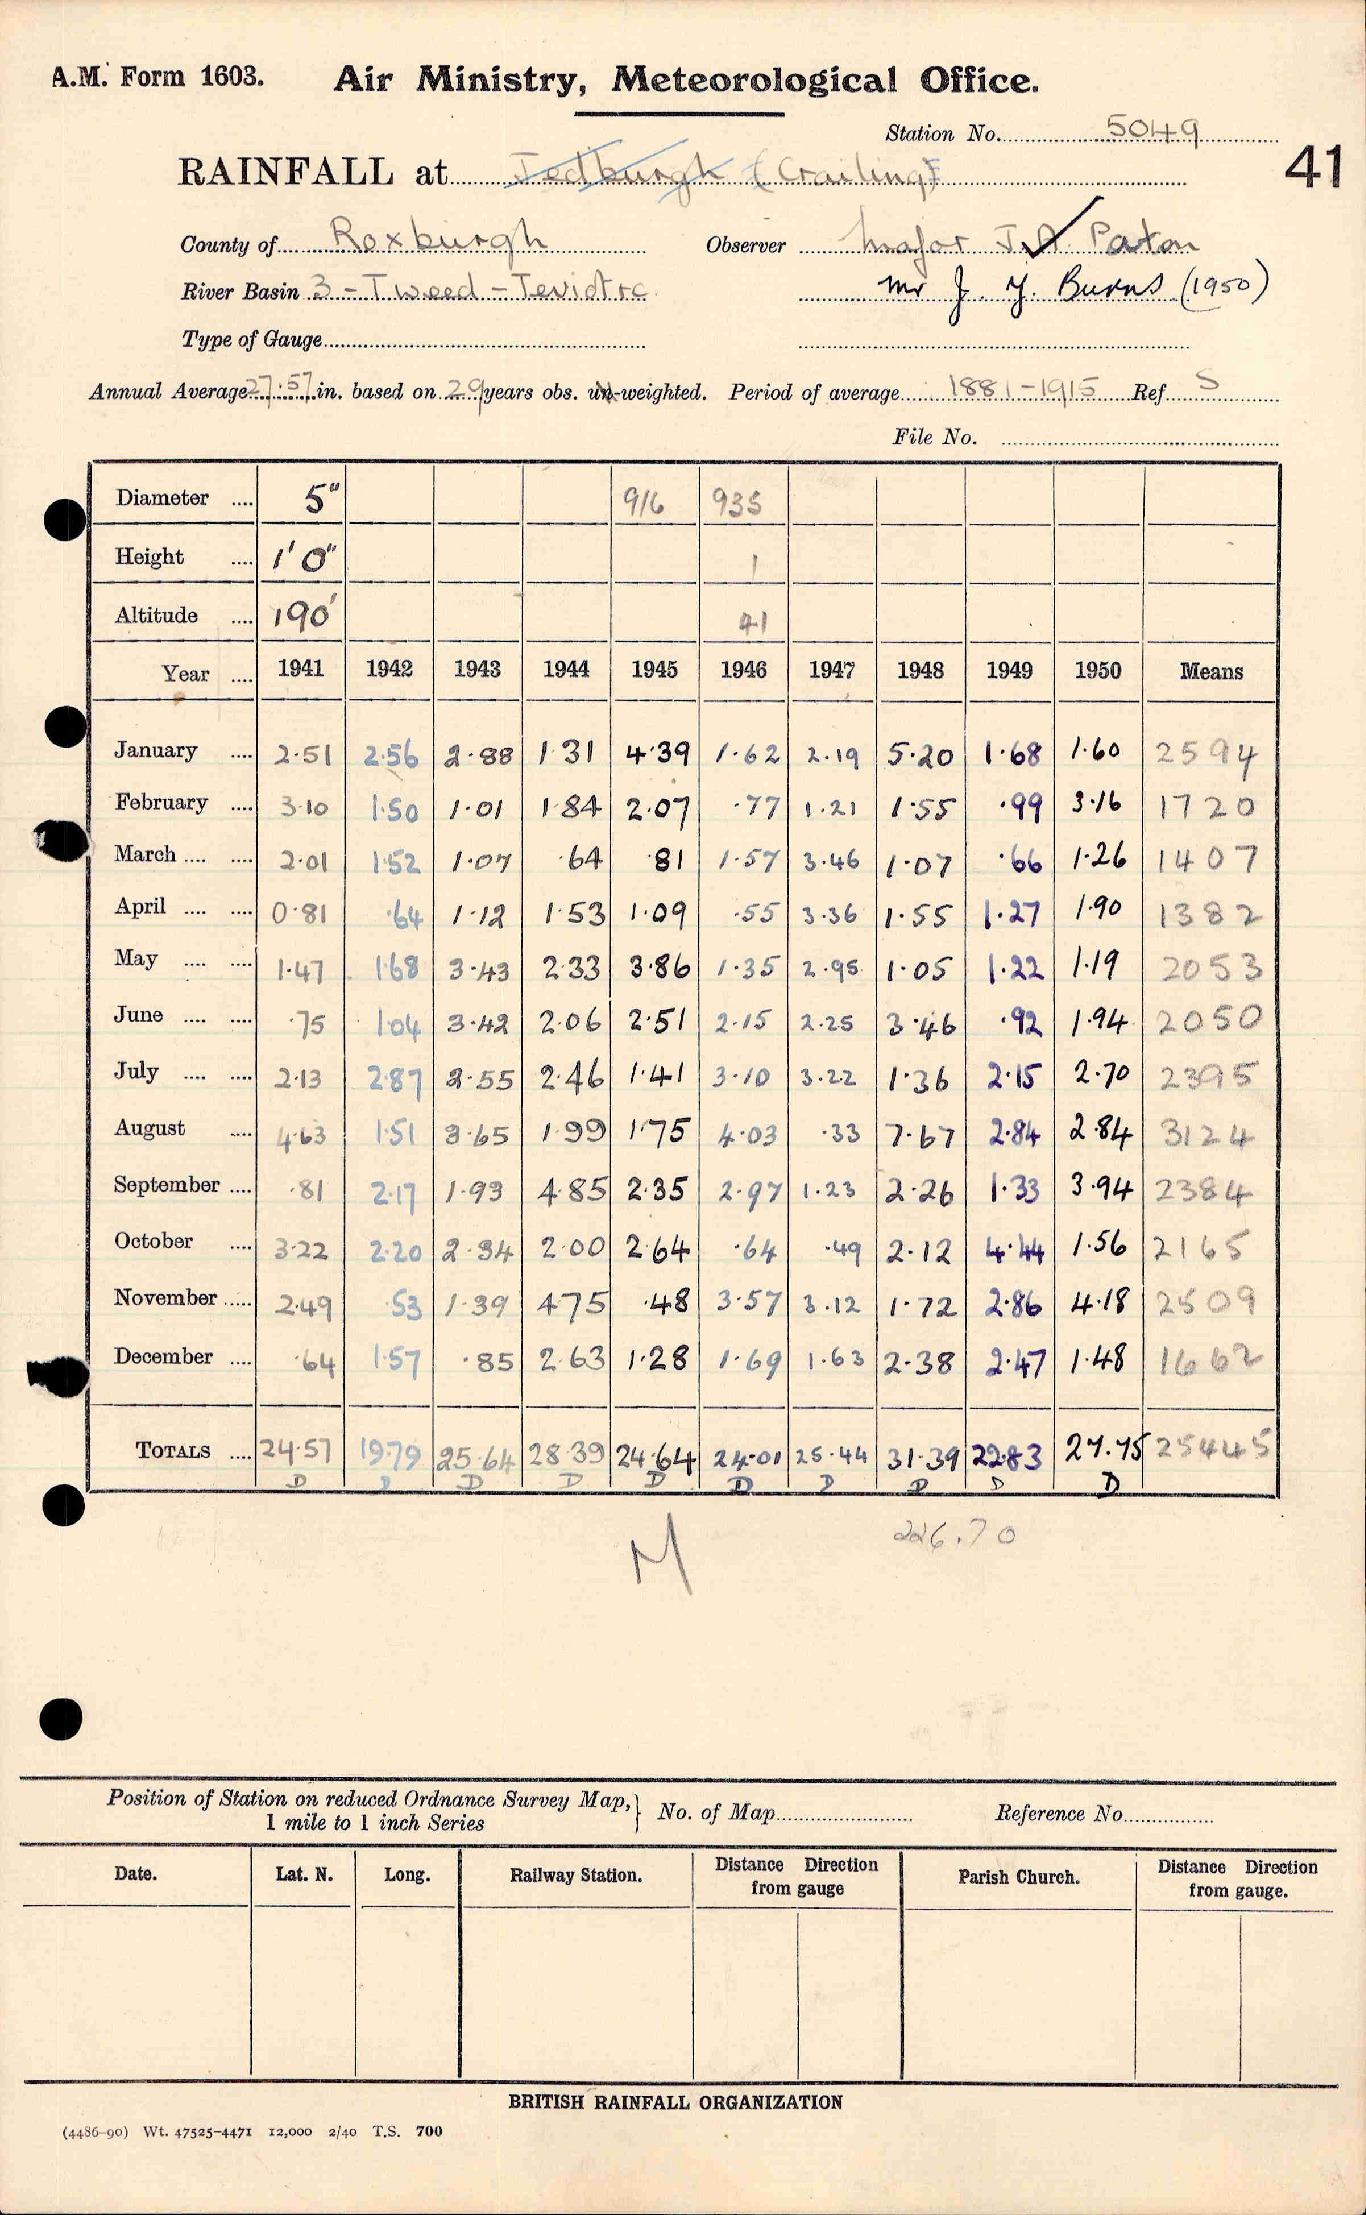 A.M. Form 1603. Air Ministry, Meteorological Office.
Station No. 5049
41
RAINFALL at Jedburgh (Crailing)
County of Roxburgh Observer Major J.A. Paton
River Basin 3 - Tweed - Teviot rc Mr J. Y. Burns (1950)
Type of Gauge
Annual Average 27.57 in. based on 29 years obs. un-weighted. Period of average 1881-1915 Ref S
File No.
Diameter .... 5" 916 935
Height .... 1' 0" 1
Altitude .... 190' 41
Year .... 1941 1942 1943 1944 1945 1946 1947 1948 1949 1950 Means
January .... 2.51 2.56 2.88 1.31 4.39 1.62 2.19 5.20 1.68 1.60 2594
February .... 3.10 1.50 1.01 1.84 2.07 .77 1.21 1.55 .99 3.16 1720
March .... .... 2.01 1.52 1.07 .64 .81 1.57 3.46 1.07 .66 1.26 1407
April .... .... 0.81 .64 1.12 1.53 1.09 .55 3.36 1.55 1.27 1.90 1382
May .... .... 1.47 1.68 3.43 2.33 3.86 1.35 2.95 1.05 1.22 1.19 2053
June .... .... .75 1.04 3.42 2.06 2.51 2.15 2.25 3.46 .92 1.94 2050
July .... .... 2.13 2.87 2.55 2.46 1.41 3.10 3.22 1.36 2.15 2.70 2395
August .... 4.63 1.51 3.65 1.99 1.75 4.03 .33 7.67 2.84 2.84 3124
September .... .81 2.17 1.93 4.85 2.35 2.97 1.23 2.26 1.33 3.94 2384
October .... 3.22 2.20 2.34 2.00 2.64 .64 .49 2.12 4.44 1.56 2165
November ..... 2.49 .53 1.39 4.75 .48 3.57 3.12 1.72 2.86 4.18 2509
December .... .64 1.57 .85 2.63 1.28 1.69 1.63 2.38 2.47 1.48 1662
TOTALS .... 24.57 19.79 25.64 28.39 24.64 24.01 25.44 31.39 22.83 27.75 25445
D D D D D D D D D D
M 226.70
Position of Station on reduced Ordnance Survey Map,} No. of Map Reference No
1 mile to 1 inch Series
Date. Lat. N. Long. Railway Station. Distance Direction from gauge Parish Church. Distance Direction from gauge.
BRITISH RAINFALL ORGANIZATION
(4486-90) Wt. 47525-4471 12,000 2/40 T.S. 700